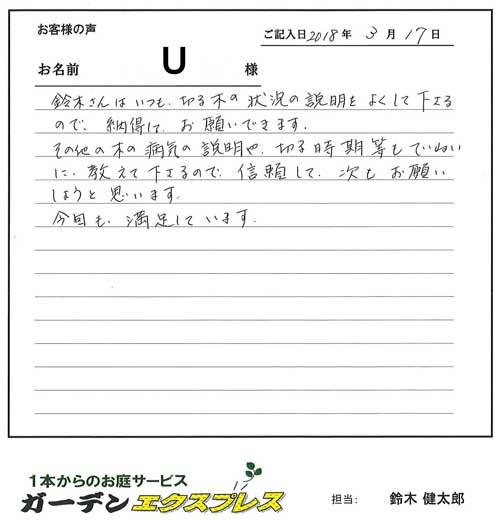 お客様の声
ご記入日 2018年 3月 17日
お名前 U 様
鈴木さんはいつも、切る木の状況の説明をよくして下さる
ので、納得して、お願いできます。
その他の木の病気の説明や、切る時期等もていねい
に、教えて下さるので、信頼して、次も お願い
しようと思います。
今回も、満足しています。
1本からのお庭サービス
ガーデンエクスプレス
担当: 鈴木 健太郎